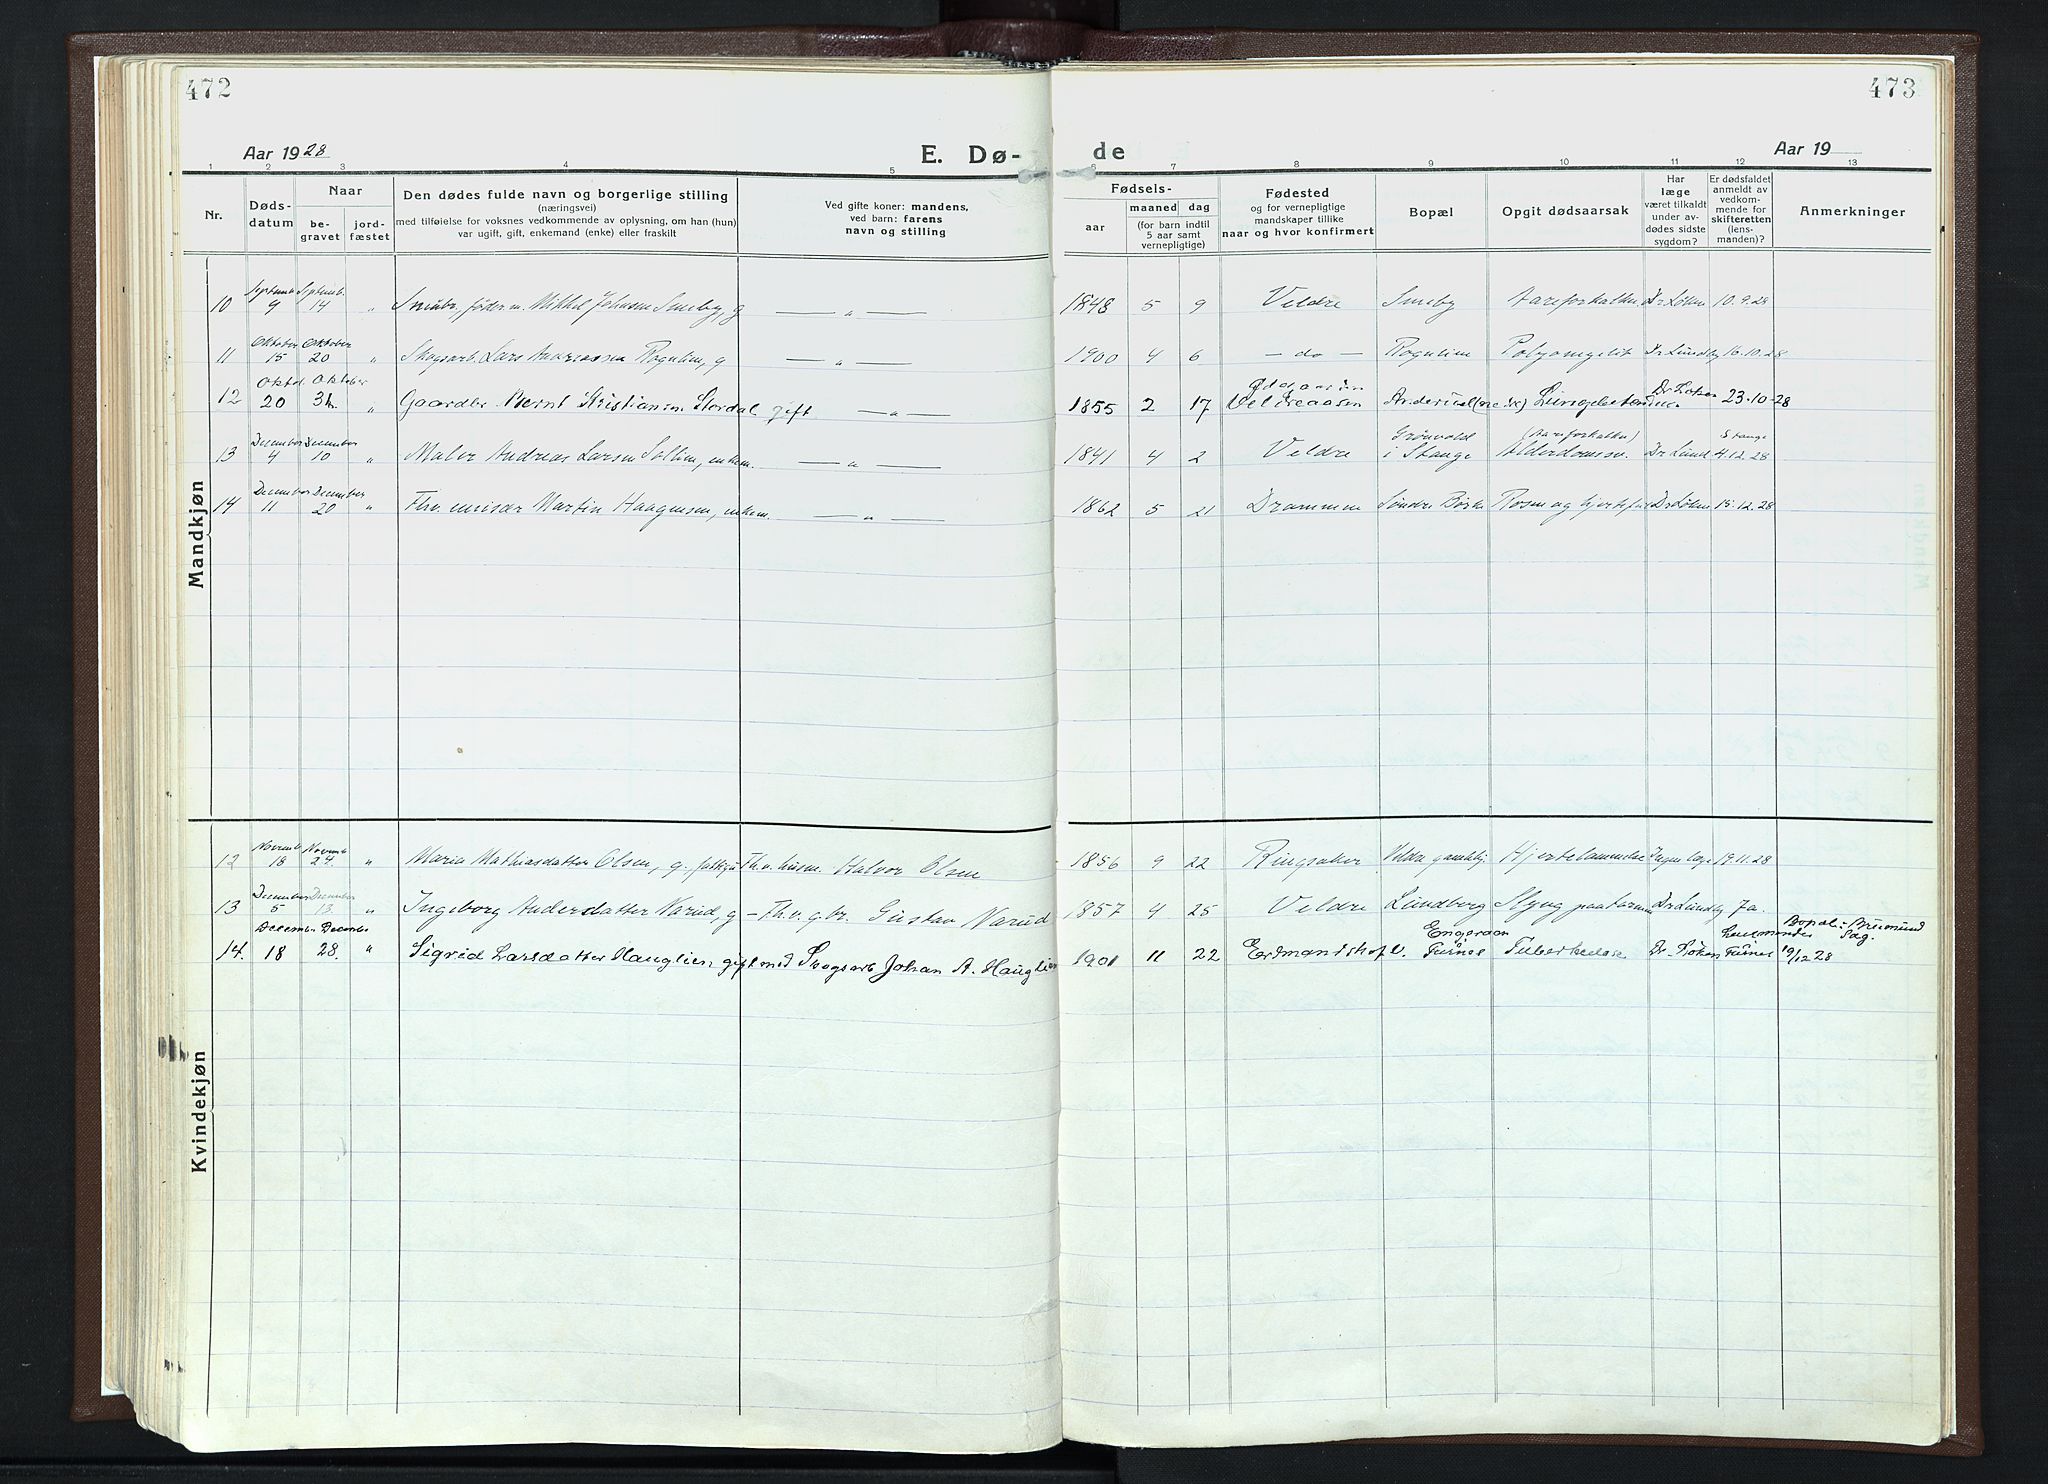 472
473
Aar 1928
E. Dø-
de
Aar 19
1 2 3 4 5 6 7 8 9 10 11 12 13
Nr.
Døds-
datum
Naar
be-
gravet
jord-
fæstet
Den dødes fulde navn og borgerlige stilling
(næringsvei)
med tilføielse for voksnes vedkommende av oplysning, om han (hun)
var ugift, gift, enkemand (enke) eller fraskilt
Ved gifte koner: mandens,
ved barn: farens
navn og stilling
Fødsels-
aar
maaned dag
(for barn indtil
5 aar samt
vernepligtige)
Fødested
og for vernepligtige
mandskaper tillike
naar og hvor konfirmert
Bopæl
Opgit dødsaarsak
Har
læge
været tilkaldt
under av-
dødes sidste
sygdom?
Er dødsfaldet
anmeldt av
vedkom-
mende for
skifteretten
(lens-
manden)?
Anmerkninger
Mandkjøn
10 Septemb. 9 Septemb. 14 " Smaabr. føder. m. Mikkel Johnsen Smeby, g — " — 1848 5 9 Veldre Smeby Aareforkalkn. Dr Løken 10.9.28
11 Oktober 15 Oktober 20 " Skogsarb. Lars Rognlien, g — " — 1900 4 6 — do — Rognlien Dr Lundby 16.10.28
12 Oktd. 20 Oktober " Gaardbr. Bernt Kristiansen Stordal gift — " — 1855 2 17 Veldreaasen Dr Løken 23.10-28
13 December 4 December 10 " Maler Andreas Larsen Sollien, enkem. — " — 1841 4 2 Veldre Grønvold i Stange (Aareforkalkn) Alderdomssv. Dr Lund Stange 4.12.28
14 December 11 December 20 " Fhv. Martin Haagensen, enkem. — " — 1862 5 21 Drammen Søndre Rosen og Dr Løken 15.12.28
Kvindekjøn
12 Novemb. 18 Novemb. 24 " Maria Mathiasdatter Olsen, g. Fh.v. husm. Halvor Olsen 1856 9 22 Ringsaker Veldre gamlehj Hjertelammelse Ingen læge 19.11.28
13 December 5 December 13. " Ingeborg Andersdatter Narud, g — Fh.v. g.br. Gustav Narud 1857 4 25 Veldre Lundberg Dr Lundby Ja.
14. December 18 December 28. " Sigrid Larsdatter Hauglien gift med Skogsarb Johan A. Hauglien 1901 11 22 Furnes Tuberkulose Dr. Løken Lensmanden Furnes 19/12 28 Bopæl: Brumund Sag.